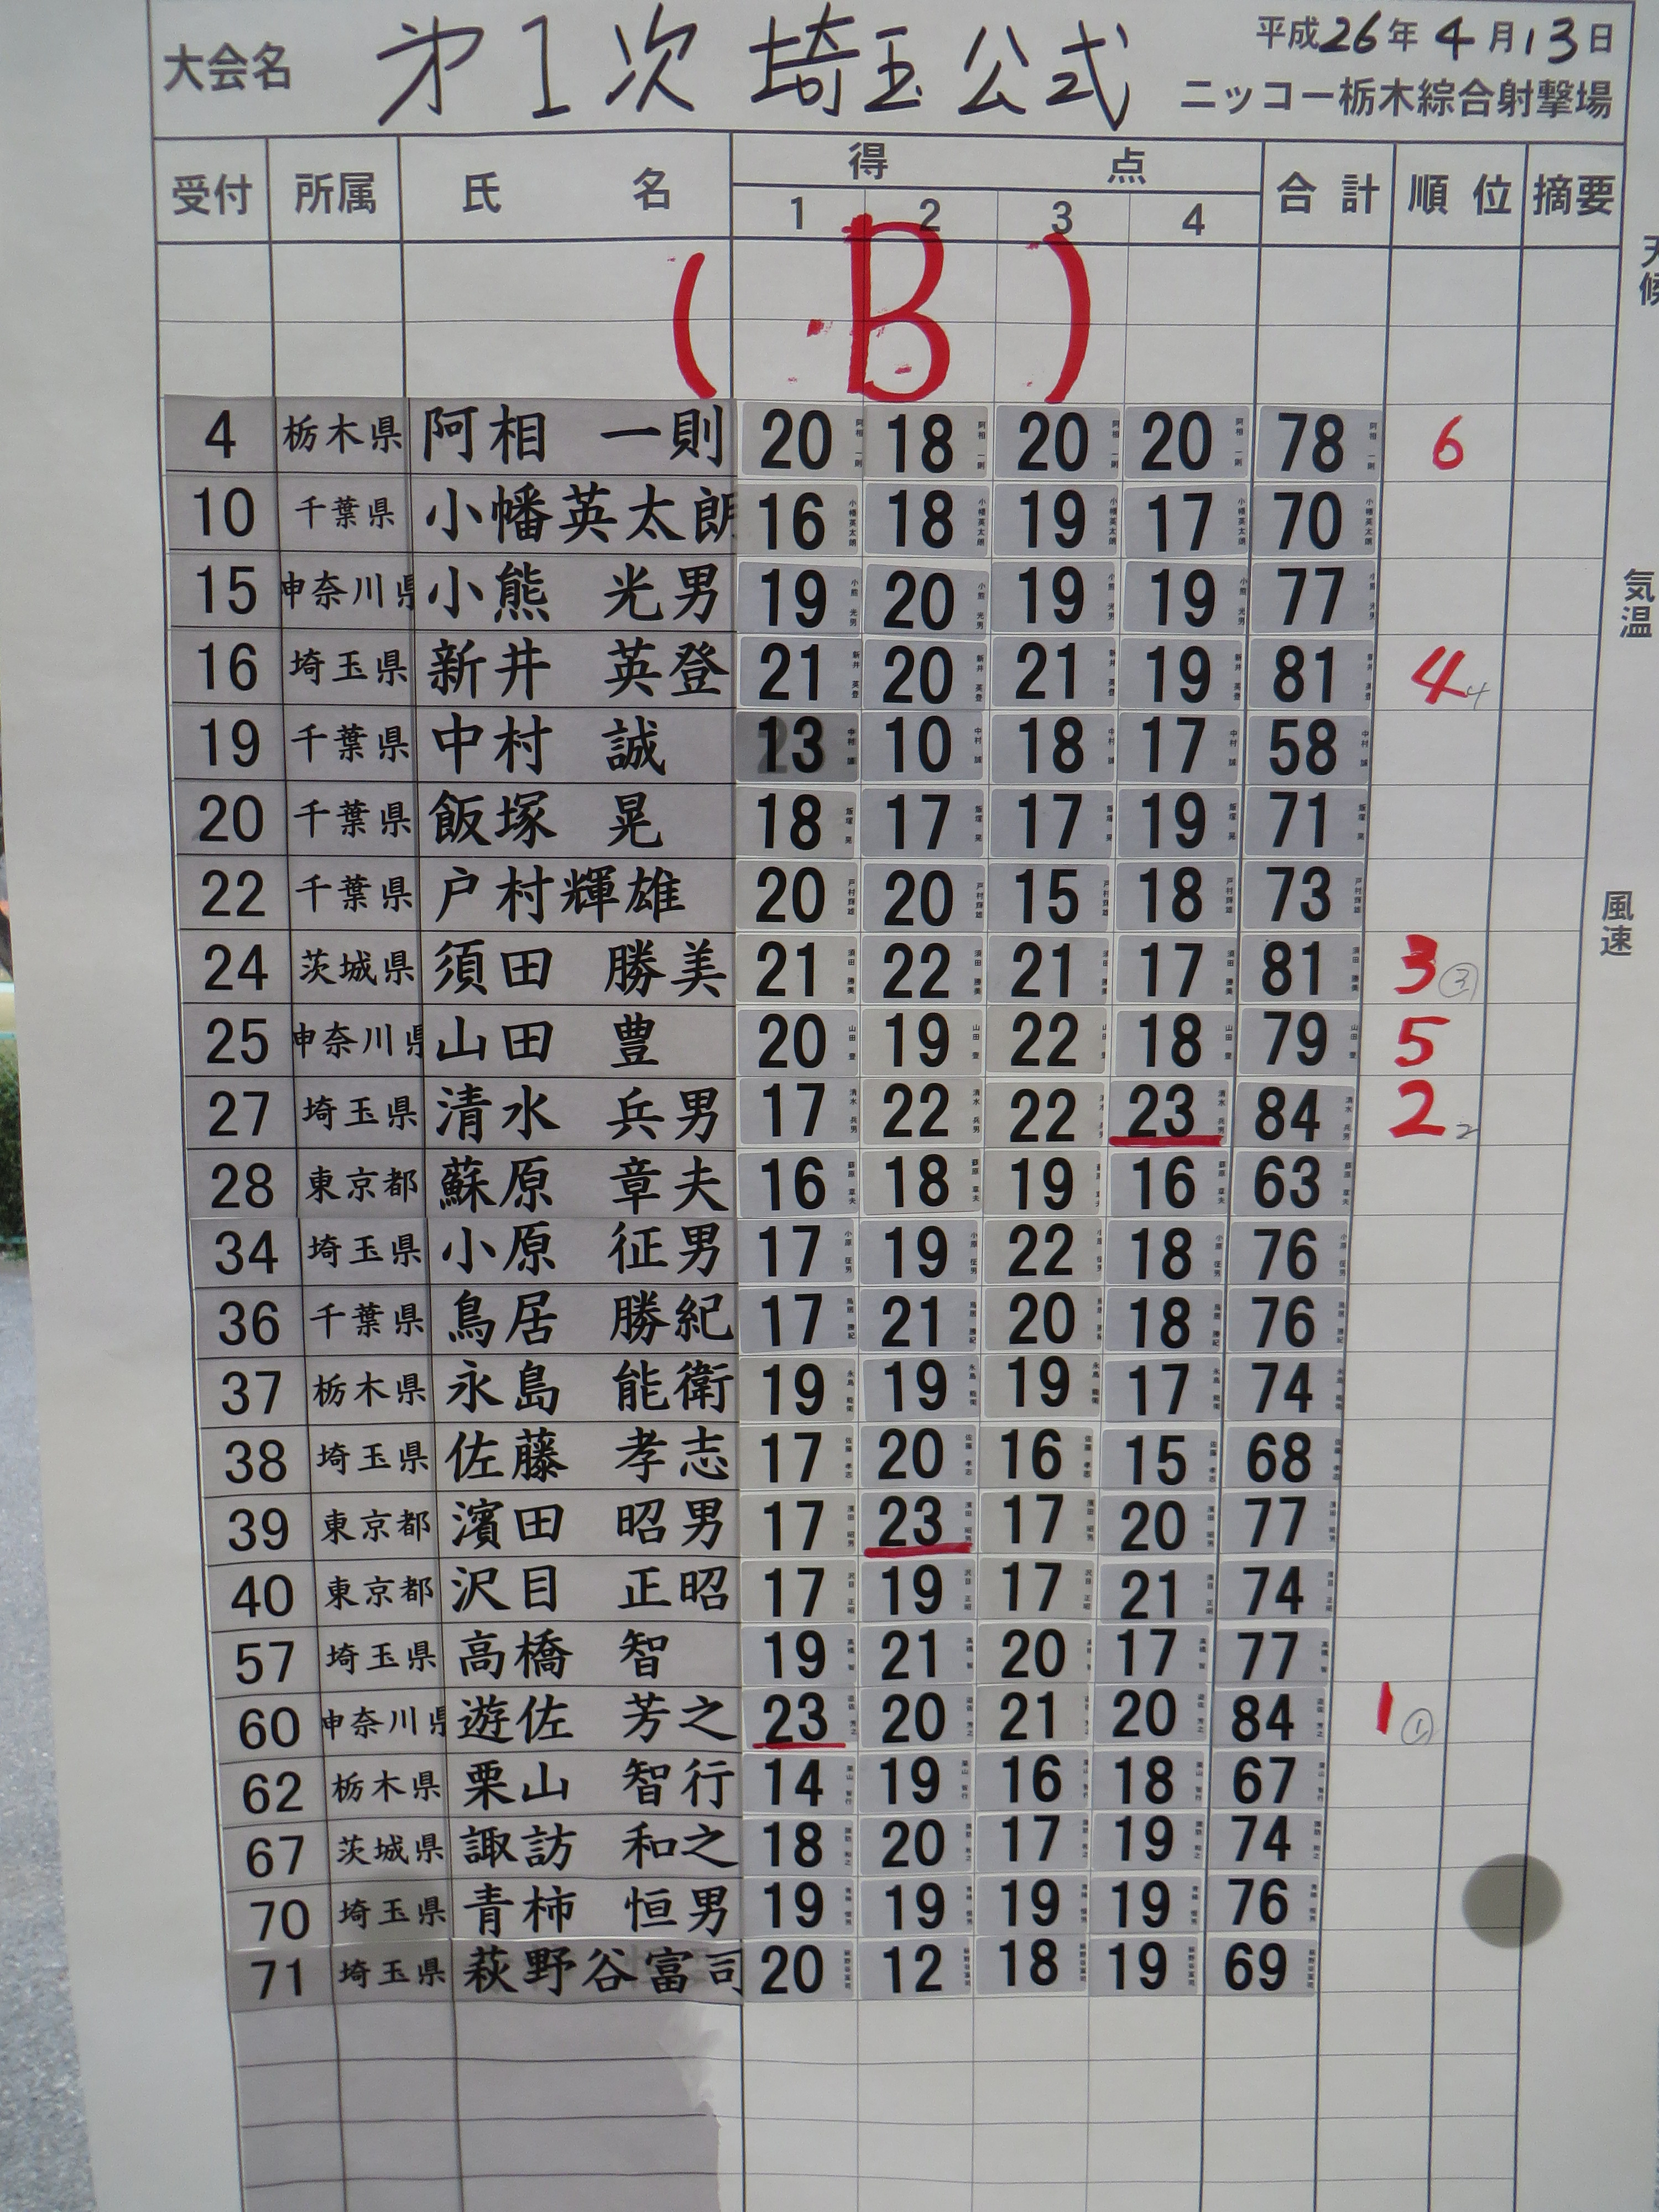 大会名 第1次 埼玉公式 平成26年4月13日
ニッコー栃木綜合射撃場
受付 所属 氏名 得点 合計 順位 摘要
1 2 3 4
(B)
天候
気温
風速
4 栃木県 阿相 一則 20 18 20 20 78 6
10 千葉県 小幡英太朗 16 18 19 17 70
15 神奈川県 小熊 光男 19 20 19 19 77
16 埼玉県 新井 英登 21 20 21 19 81 4 4
19 千葉県 中村 誠 13 10 18 17 58
20 千葉県 飯塚 晃 18 17 17 19 71
22 千葉県 戸村輝雄 20 20 15 18 73
24 茨城県 須田 勝美 21 22 21 17 81 3 ③
25 神奈川県 山田 豊 20 19 22 18 79 5
27 埼玉県 清水 兵男 17 22 22 23 84 2 2
28 東京都 蘇原 章夫 16 18 19 16 63
34 埼玉県 小原 征男 17 19 22 18 76
36 千葉県 鳥居 勝紀 17 21 20 18 76
37 栃木県 永島 能衛 19 19 19 17 74
38 埼玉県 佐藤 孝志 17 20 16 15 68
39 東京都 濱田 昭男 17 23 17 20 77
40 東京都 沢目 正昭 17 19 17 21 74
57 埼玉県 高橋 智 19 21 20 17 77
60 神奈川県 遊佐 芳之 23 20 21 20 84 1 ①
62 栃木県 栗山 智行 14 19 16 18 67
67 茨城県 諏訪 和之 18 20 17 19 74
70 埼玉県 青柿 恒男 19 19 19 19 76
71 埼玉県 萩野谷富司 20 12 18 19 69